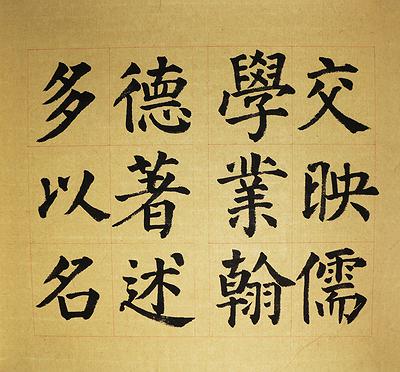 交映儒
學業翰
德著述
多以名